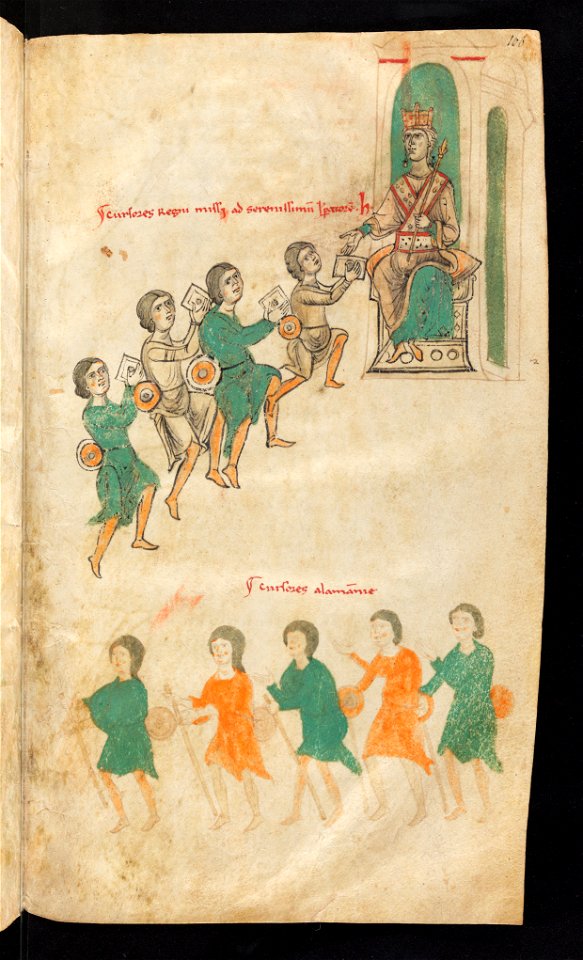 106
¶ cursores Regū missi ad serenissimū Ip̄atorē · h
¶ cursores alamānie